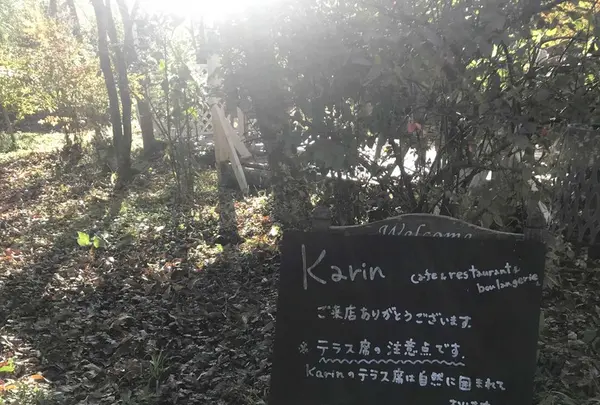 Welcome
Karin cafe & restaurant &
boulangerie
ご来店ありがとうございます.
※ テラス席の注意点です.
Karinのテラス席は自然に囲まれて